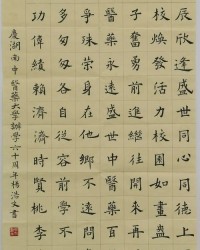 辰欣逢盛世同心同德上
煥發活力園如畫
子奮勇前進繼往開來
醫藥永醫藥百
爭殊榮身在他鄉不遠問
多匆匆各自從容前學不
功偉績賴濟濟時賢桃李
慶湖南中醫藥大學辦學六十周年楊浩書